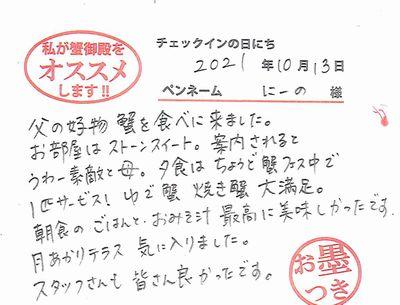 私が蟹御殿を
オススメ
します!!
チェックインの日にち
2021年10月13日
ペンネーム にーの 様
父の好物 蟹を食べに来ました。
お部屋はストーンスイート。案内されると
うわー素敵と母。夕食はちょうど蟹フェス中で
1匹サービス! ゆで蟹 焼き蟹 大満足。
朝食のごはんと、おみそ汁 最高に美味しかったです。
月あかりテラス 気に入りました。
スタッフさんも 皆さん良かったです。
お墨
つき